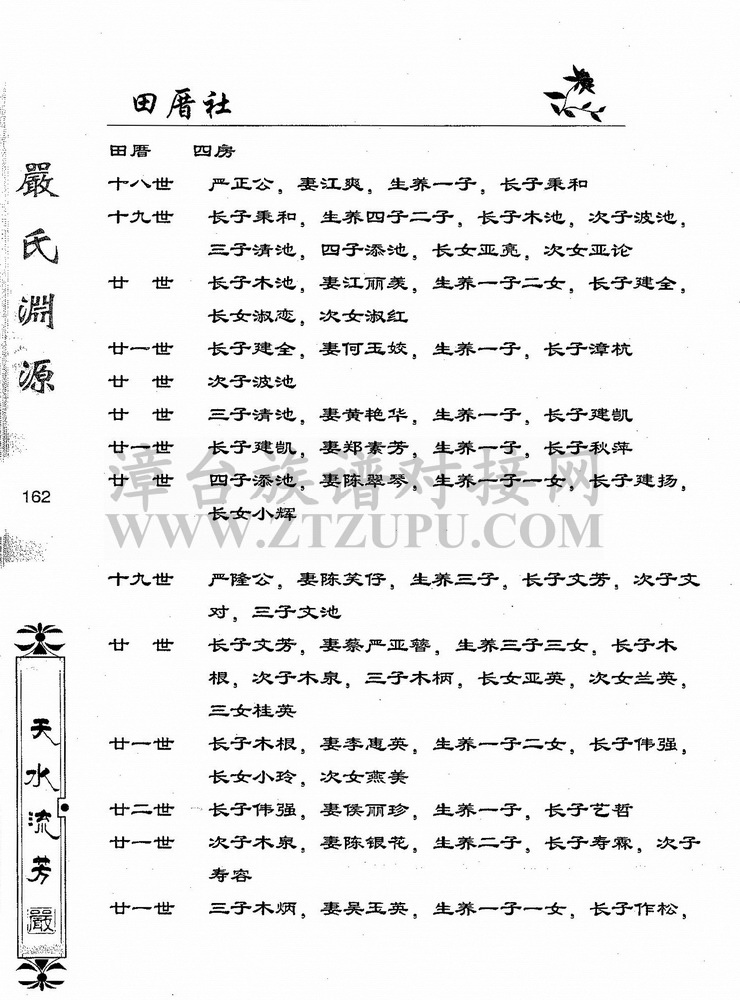 田厝社
田厝 四房
十八世 严正公，妻江爽，生养一子，长子秉和
十九世 长子秉和，生养四子二子，长子木池，次子波池，
三子清池，四子添池，长女亚亮，次女亚论
廿世 长子木池，妻江丽羡，生养一子二女，长子建全，
长女淑恋，次女淑红
廿一世 长子建全，妻何玉姣，生养一子，长子漳杭
廿世 次子波池
廿世 三子清池，妻黄艳华，生养一子，长子建凯
廿一世 长子建凯，妻郑素芳，生养一子，长子秋萍
廿世 四子添池，妻陈翠琴，生养一子一女，长子建扬，
长女小辉
十九世 严隆公，妻陈笑仔，生养三子，长子文芳，次子文
对，三子文池
廿世 长子文芳，妻蔡严亚簪，生养三子三女，长子木
根，次子木泉，三子木柄，长女亚英，次女兰英，
三女桂英
廿一世 长子木根，妻李惠英，生养一子二女，长子伟强，
长女小玲，次女燕美
廿二世 长子伟强，妻侯丽珍，生养一子，长子艺哲
廿一世 次子木泉，妻陈银花，生养二子，长子寿霖，次子
寿容
廿一世 三子木炳，妻吴玉英，生养一子一女，长子作松，
嚴氏淵源
162
天水流芳
嚴
漳台族谱对接网
WWW.ZTZUPU.COM